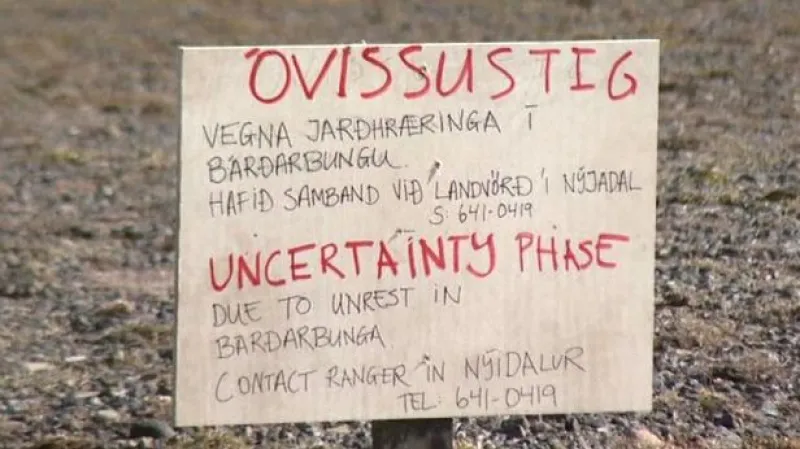 ÓVISSUSTIG
VEGNA JARÐHRÆRINGA Í
BÁRÐARBUNGU.
HAFIÐ SAMBAND VIÐ LANDVÖRÐ Í NÝJADAL
S: 641-0419
UNCERTAINTY PHASE
DUE TO UNREST IN
BARÐARBUNGA
CONTACT RANGER IN NÝIDALUR
TEL: 641-0419